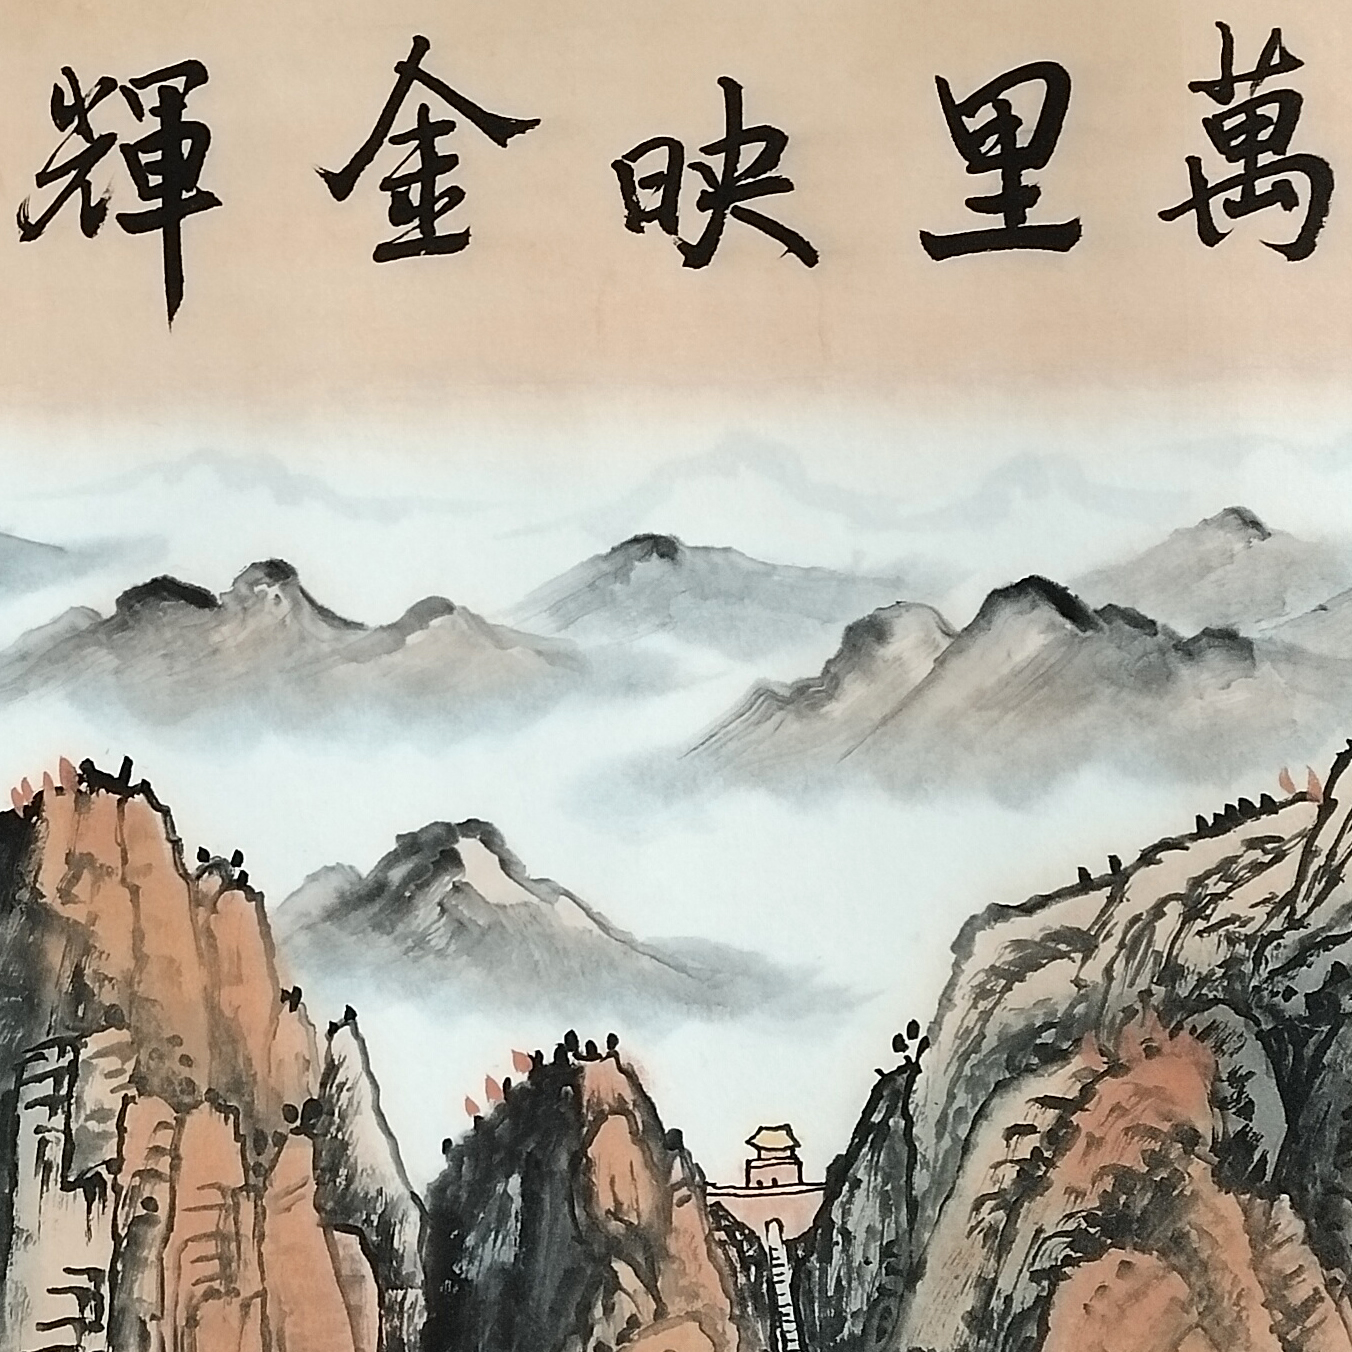 萬里映金輝